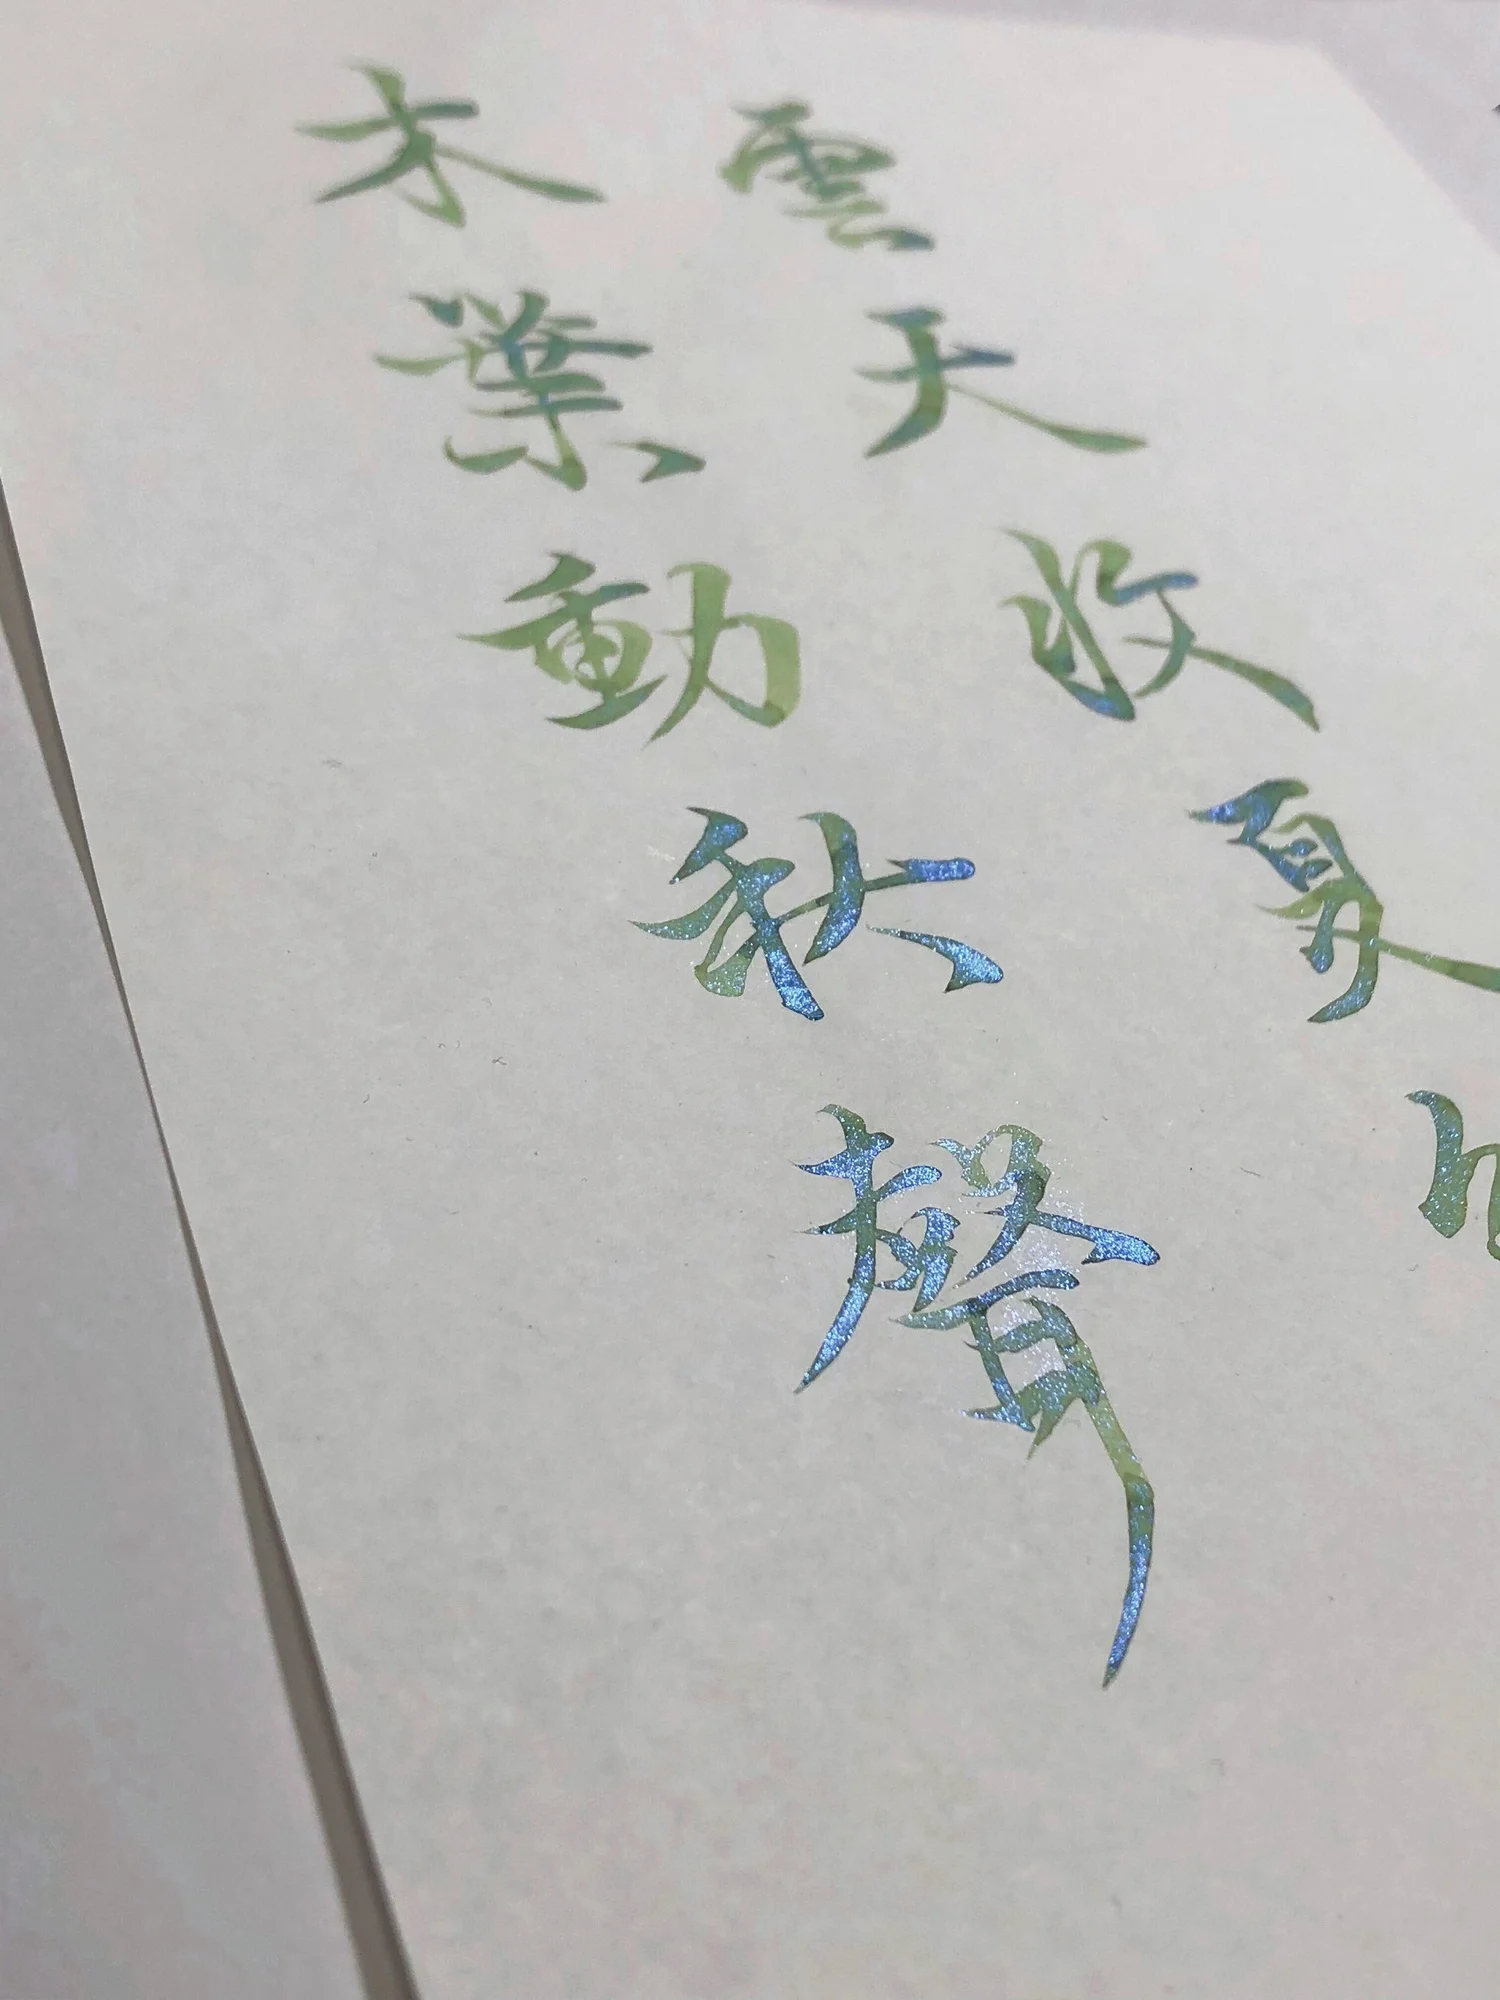 雲天收夏
木葉動秋聲